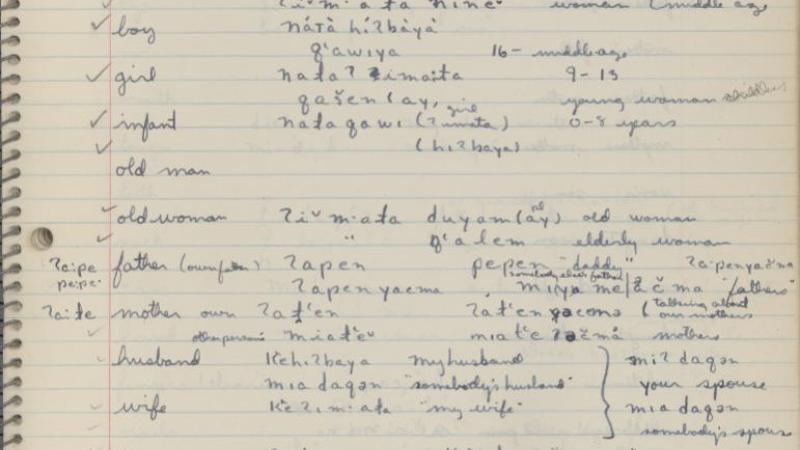 woman (middle age
boy nátà híʔbàyà
q'awiya 16 - middle age
girl nataʔ ʔimaːta 9-13
qašen (ay, young woman
infant nataqawi (ʔimata) girl 0-8 years
(hiʔbaya)
old man
old woman ʔi m·ata duyam (ay) old woman
" q'alem elderly woman
ʔaːpe father (own) ʔapen pepen "daddy"
pe·pe· ʔapenyacma miya "fathers"
ʔaːte mother own ʔat'en ʔat'en yacoma (talking about our mothers
other persons miat'e miat'e mothers
husband k'ehiʔbaya my husband miʔ daqən
mia daqən "somebody's husband" your spouse
wife k'eʔi·m·ata "my wife" mia daqən
somebody's spouse